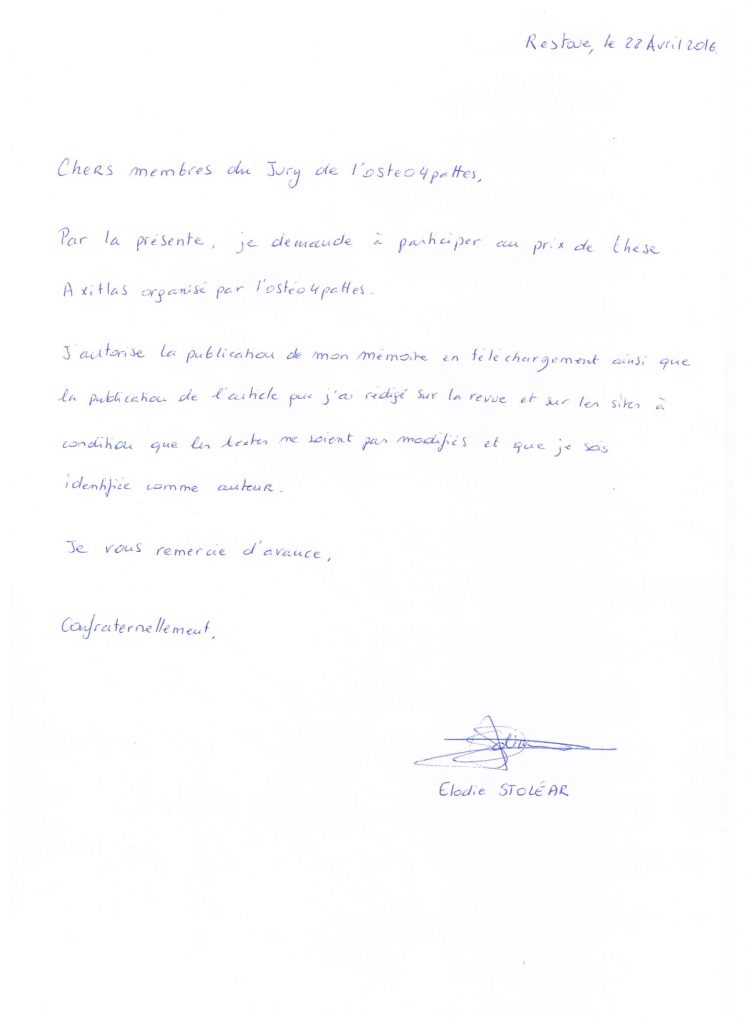 Restoue, le 22 Avril 2016
Chers membres du Jury de l'osteo4pattes,
Par la présente, je demande à participer au prix de thèse
Axitlas organisé par l'osteo4pattes.
J'autorise la publication de mon mémoire en téléchargement ainsi que
la publication de l'article que j'ai rédigé sur la revue et sur les sites à
condition que les textes ne soient pas modifiés et que je sois
identifiée comme auteur.
Je vous remercie d'avance,
Confraternellement,
Elodie STOLÉAR